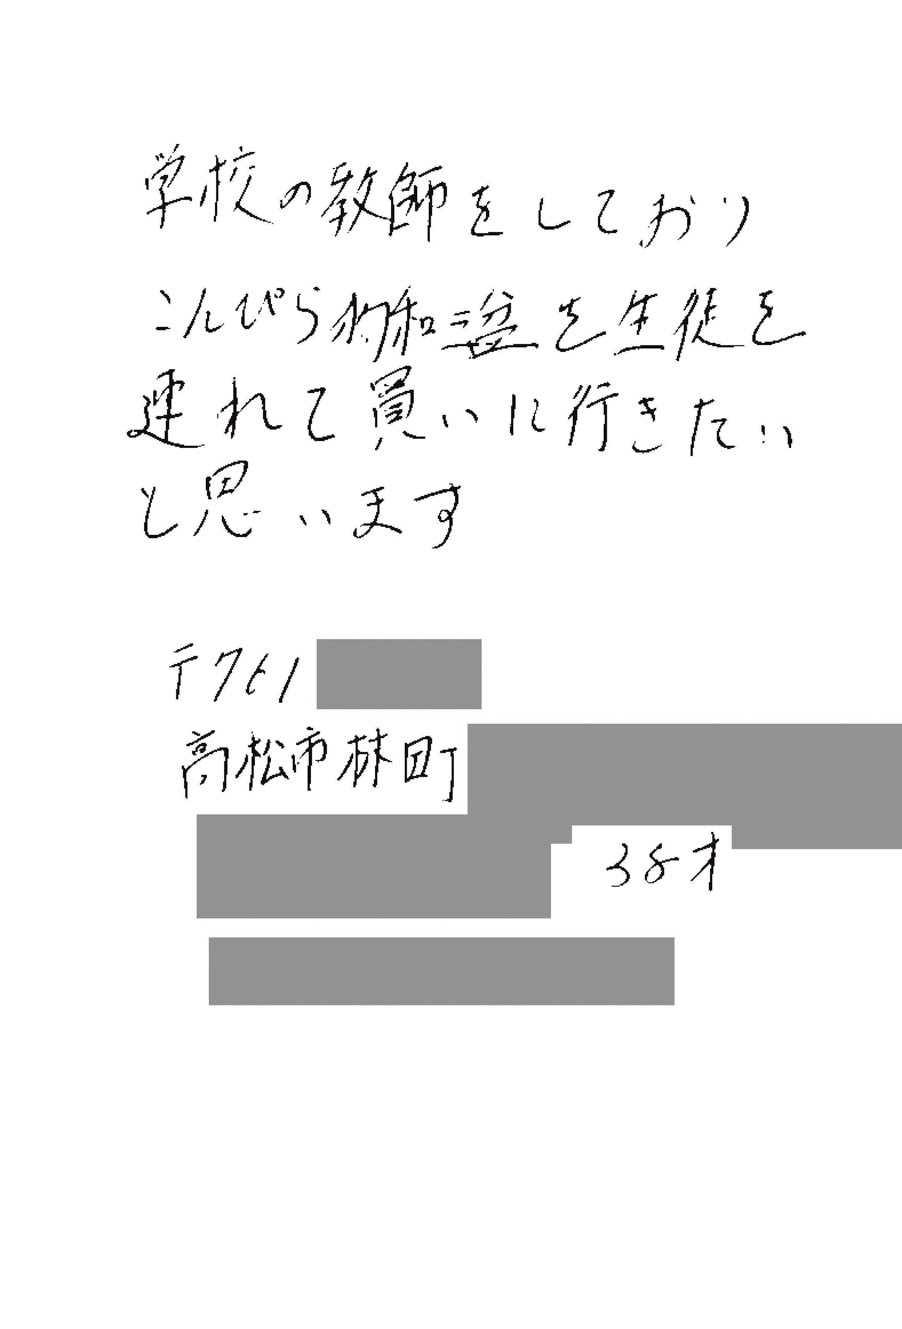 学校の教師をしており
こんぴら 和三盆を生徒を
連れて買いに行きたい
と思います
〒761
高松市林町
38才